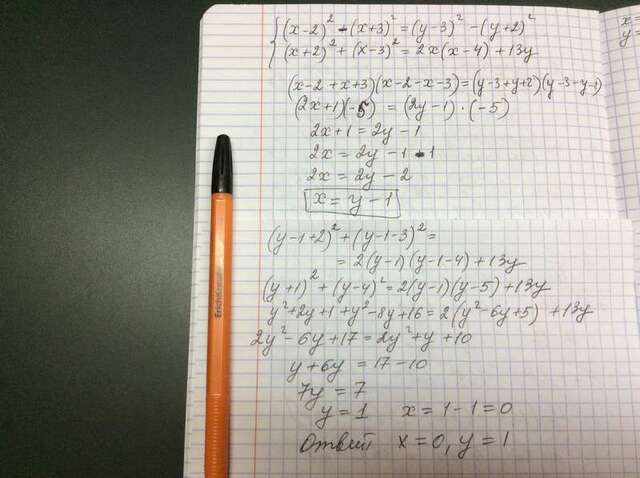 (x-2)² - (x+3)² = (y-3)² - (y+2)²
(x+2)² + (x-3)² = 2x(x-4) + 13y
(x-2+x+3)(x-2-x-3) = (y-3+y+2)(y-3-y-1)
(2x+1)(-5) = (2y-1)·(-5)
2x+1 = 2y-1
2x = 2y-1-1
2x = 2y-2
x = y-1
(y-1+2)² + (y-1-3)² =
= 2(y-1)(y-1-4) + 13y
(y+1)² + (y-4)² = 2(y-1)(y-5) + 13y
y²+2y+1+y²-8y+16 = 2(y²-6y+5) + 13y
2y²-6y+17 = 2y²+y+10
y+6y = 17-10
7y = 7
y = 1 x = 1-1 = 0
Ответ x = 0, y = 1
ErichKrause
x=
y=